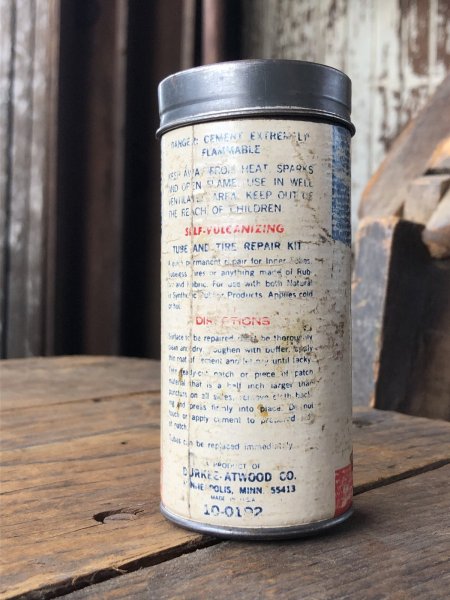 DANGER: CEMENT EXTREMELY
FLAMMABLE
KEEP AWAY FROM HEAT, SPARKS
AND OPEN FLAME. USE IN WELL
VENTILATED AREA. KEEP OUT OF
THE REACH OF CHILDREN
SELF-VULCANIZING
TUBE AND TIRE REPAIR KIT
A quick permanent repair for Inner Tubes,
Tubeless Tires or anything made of Rub-
ber and Fabric. For use with both Natural
or Synthetic Rubber Products. Applies cold
or hot.
DIRECTIONS
Surface to be repaired must be thoroughly
clean and dry. Roughen with buffer, apply
thin coat of cement and let dry until tacky.
Take ready-cut patch or piece of patch
material that is a half inch larger than
puncture on all sides, remove cloth back-
ing and press firmly into place. Do not
touch or apply cement to prepared side
of patch.
Tubes can be replaced immediately.
A PRODUCT OF
DURKEE-ATWOOD CO.
MINNEAPOLIS, MINN. 55413
MADE IN U.S.A.
10-0192